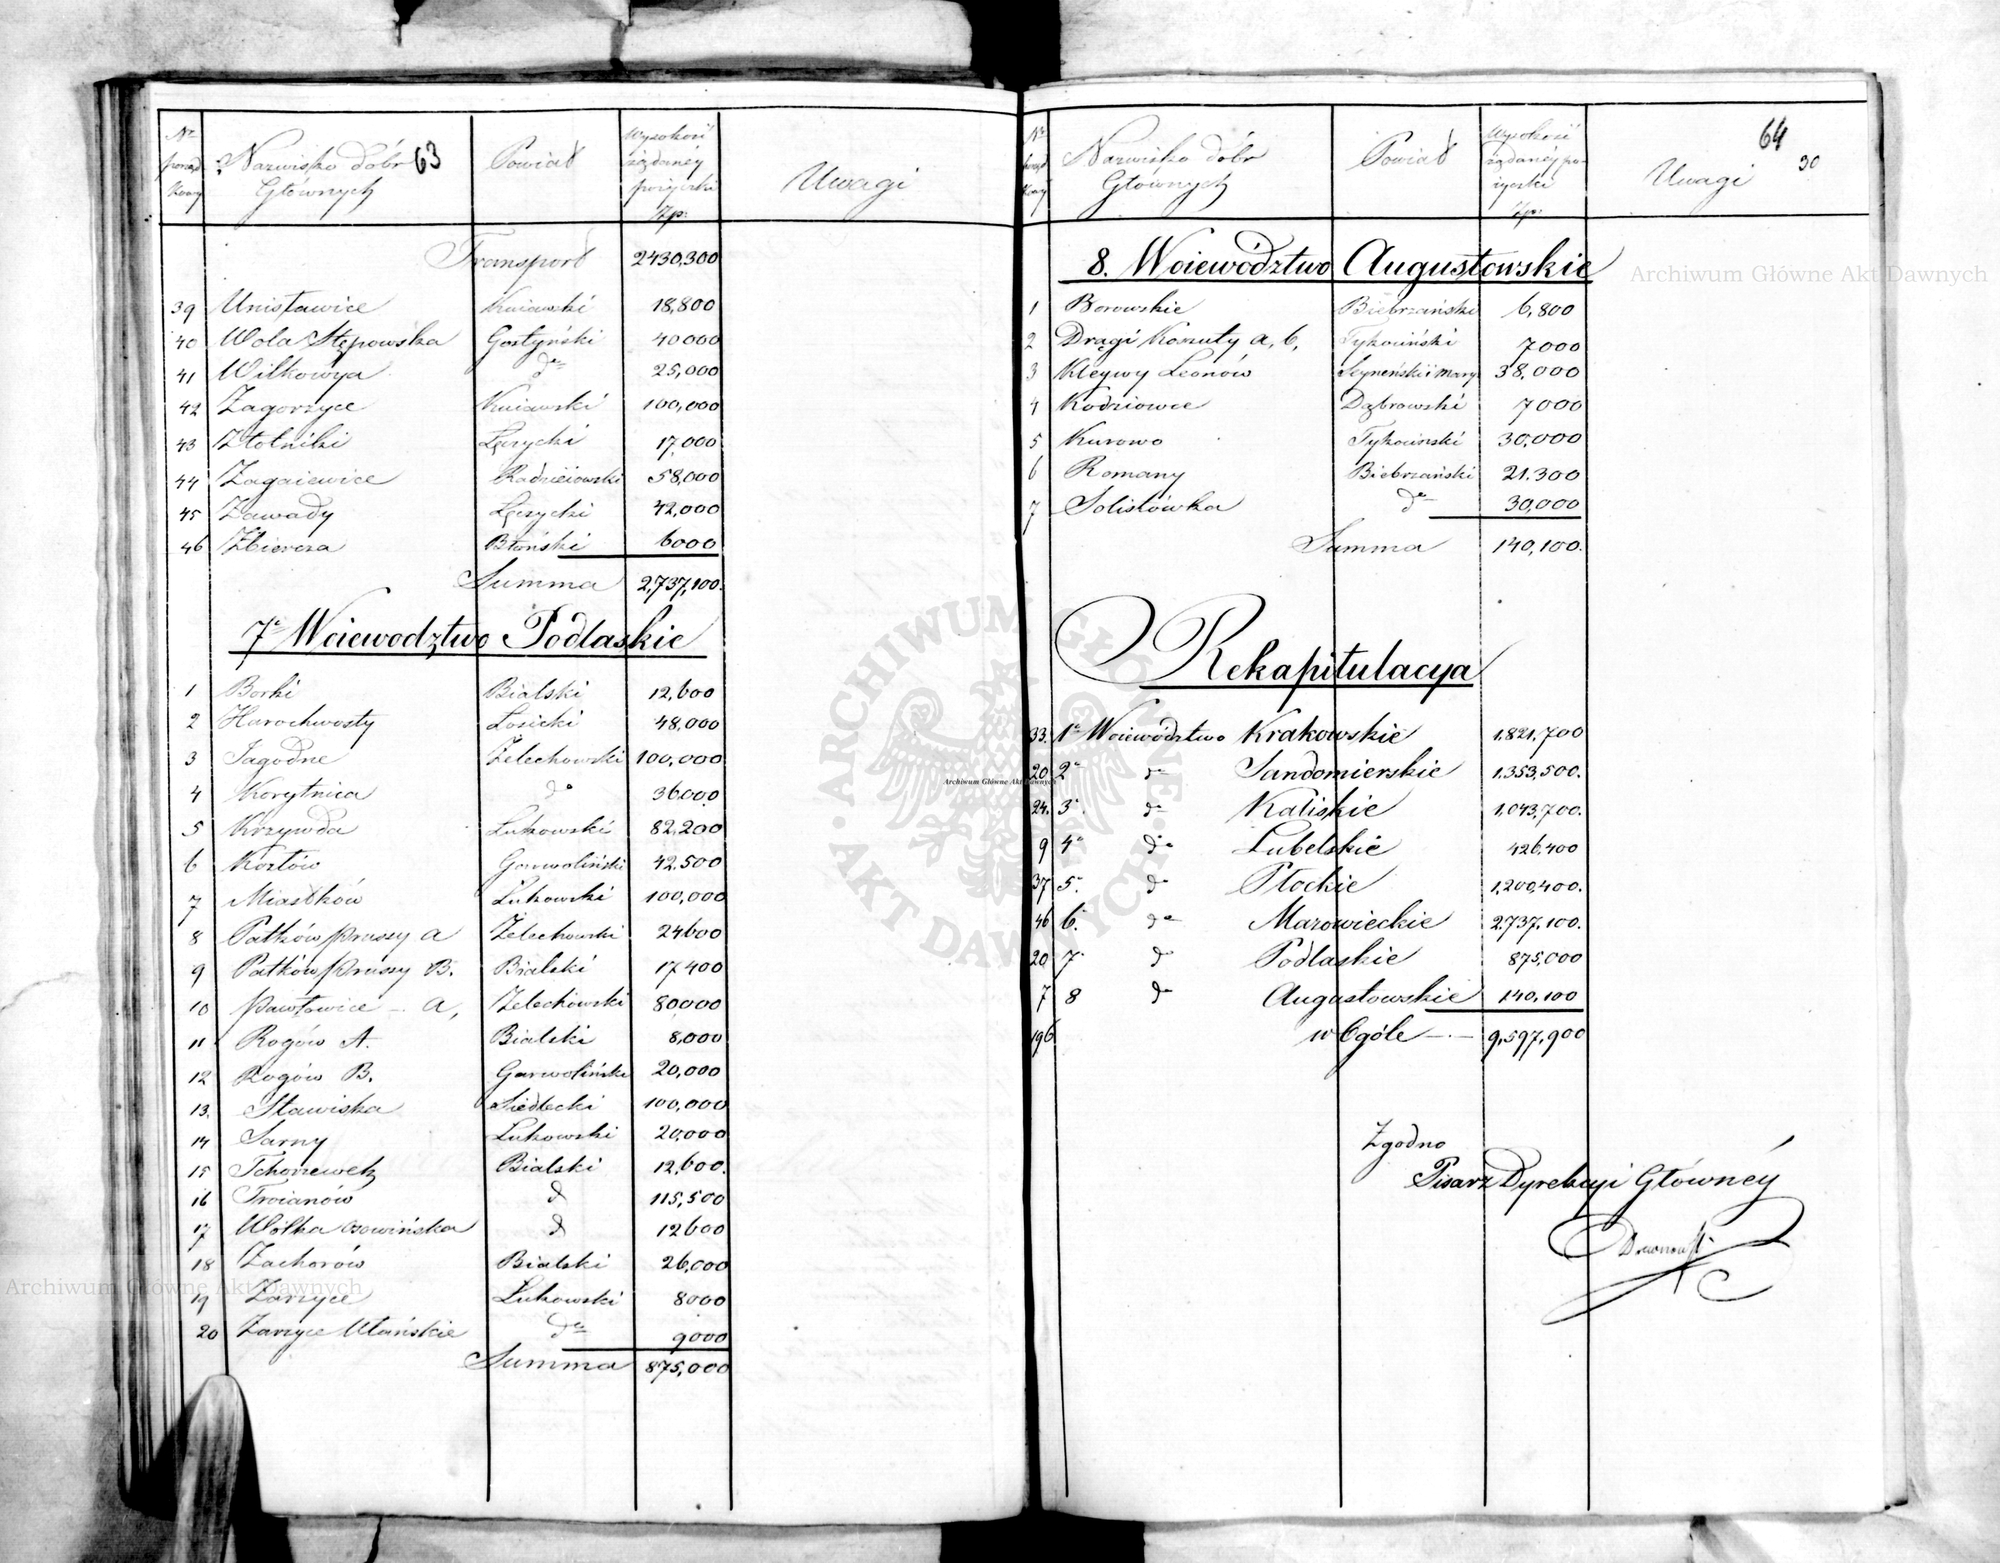 63
Nr porządkowy Nazwisko dóbr Głównych Powiat Wysokość żądanéy pożyczki Złp: Uwagi
Transport 2430,300
39 Unisławice Kuiawski 18,800
40 Wola Stępowska Gostyński 40000
41 Wilkowya do 25,000
42 Zagorzyce Kuiawski 100,000
43 Złotniki Łęczycki 17,000
44 Zagaiewice Radzieiowski 58,000
45 Zawady Łęczycki 42,000
46 Zbiersza Błoński 6000
Summa 2,737,100.
7e Woiewodztwo Podlaskie
1 Borki Bialski 12,600
2 Horochwosty Łosicki 48,000
3 Jagodne Żelechowski 100,000
4 Korytnica do 36000
5 Krzywda Łukowski 82,200
6 Kozłów Garwoliński 42.500
7 Miastków Łukowski 100,000
8 Patków prussy A Żelechowski 24600
9 Patków prussy B. Bialski 17400
10 Pawłowice - A, Żelechowski 80,000
11 Rogów A. Bialski 8,000
12 Rogów B. Garwoliński 20,000
13. Stawiska Siedlecki 100,000
14 Sarny Łukowski 20,000
15 Tchorzewek Bialski 12,600.
16 Troianów d 115,500
17 Wólka Osowińska d 12600
18 Zachorów Bialski 26,000
19 Zarzyce Łukowski 8000
20 Zarzyce Ułańskie do 9000
Summa 875,000
64
30
Nr porządkowy Nazwisko dóbr Głównych Powiat Wysokość żądanéy pożyczki Złp: Uwagi
8. Woiewództwo Augustowskie
1 Borowskie Biebrzański 6,800
2 Drągi Koszuty a, b, Tykociński 7000
3 Kleywy Leonów Seyneński i Mary 38,000
4 Kodziowce Dąbrowski 7000
5 Kurowo Tykociński 30.000
6 Romany Biebrzański 21.300
7 Solistówka do 30,000
Summa 140,100.
Rekapitulacya
33. 1e Woiewództwo Krakowskie 1.821.700
20 2e do Sandomierskie 1.353,500.
24. 3e do Kaliskie 1,043,700.
9 4e do Lubelskie 426,400
37 5. do Płockie 1,200,400.
46 6. do Mazowieckie 2.737,100.
20 7. do Podlaskie 875,000
7 8 do Augustowskie 140,100
196 w Ogóle 9,597,900
Zgodno
Pisarz Dyrekcyi Głównéy
Drewnowski
Archiwum Główne Akt Dawnych
Archiwum Główne Akt Dawnych
Archiwum Główne Akt Dawnych
· ARCHIWUM GŁÓWNE · AKT DAWNYCH